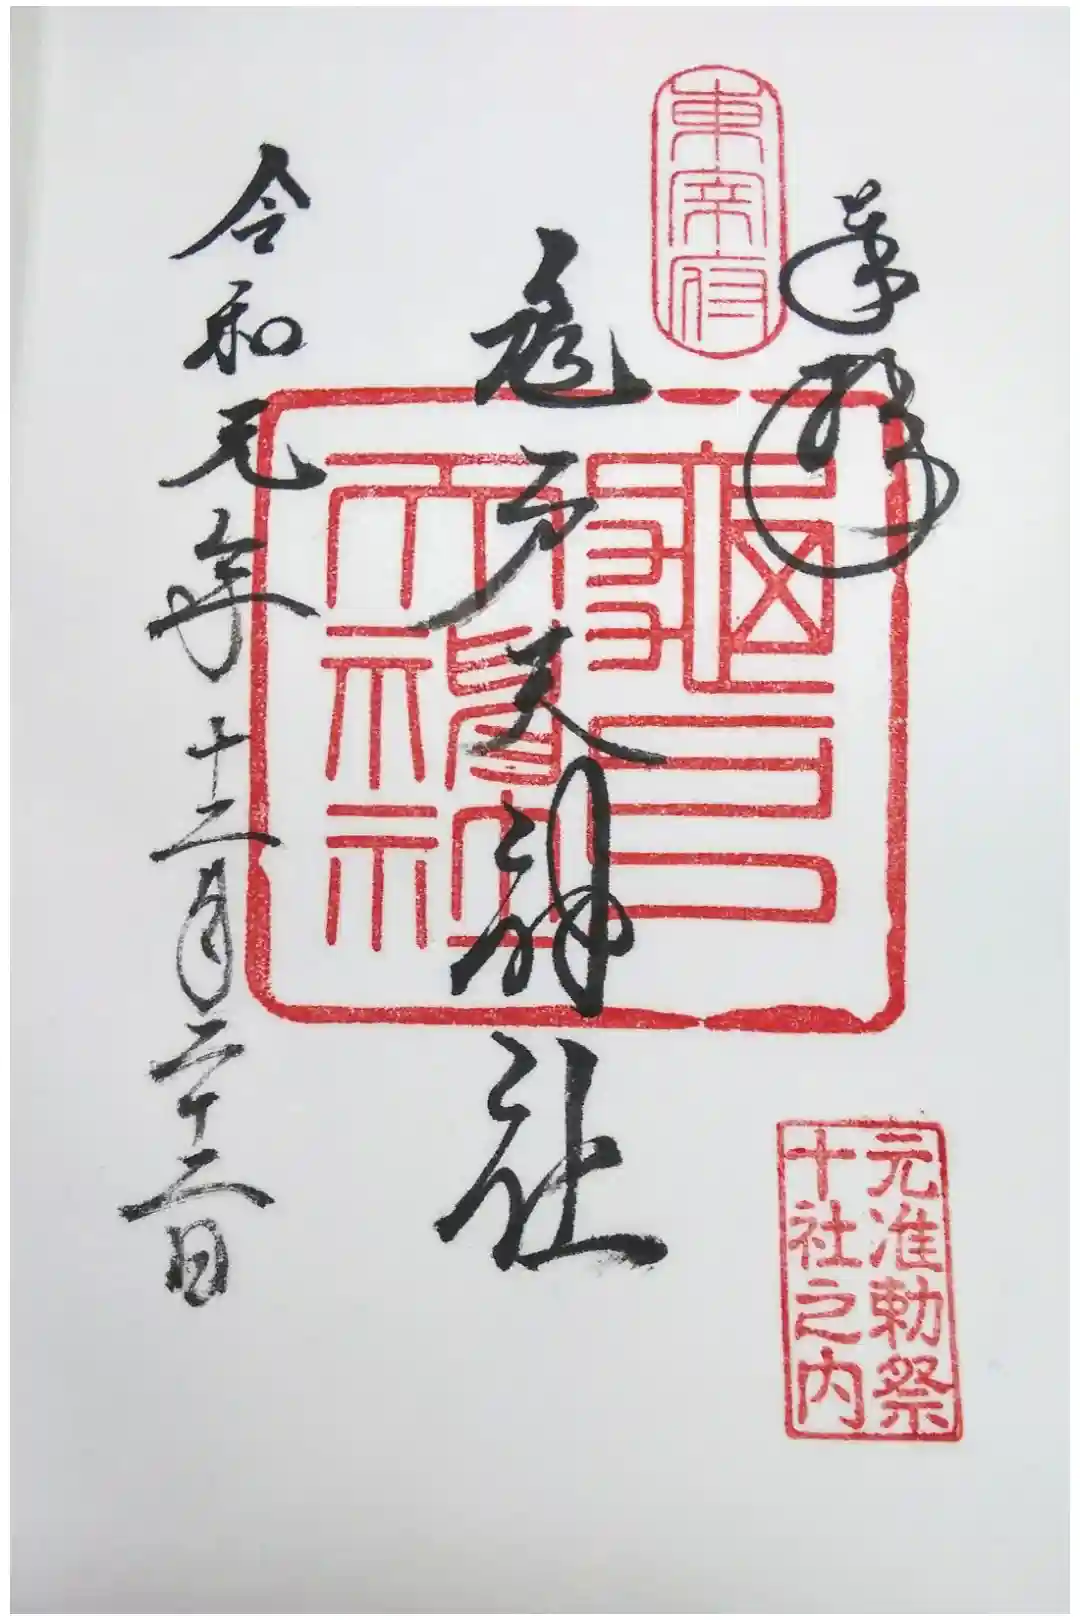 奉拝
東宰府
亀戸天神社
亀戸天満神社
令和元年十二月二十二日
元准勅祭
十社之内